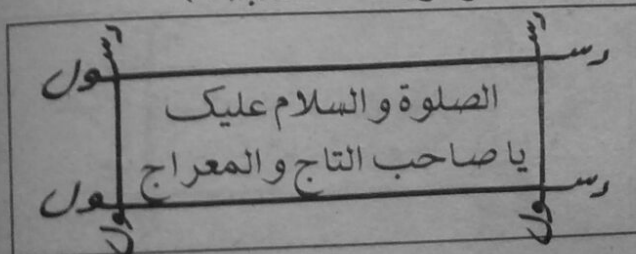 رسول
رسول
الصلوة والسلام علیک
یا صاحب التاج والمعراج
رسول
رسول